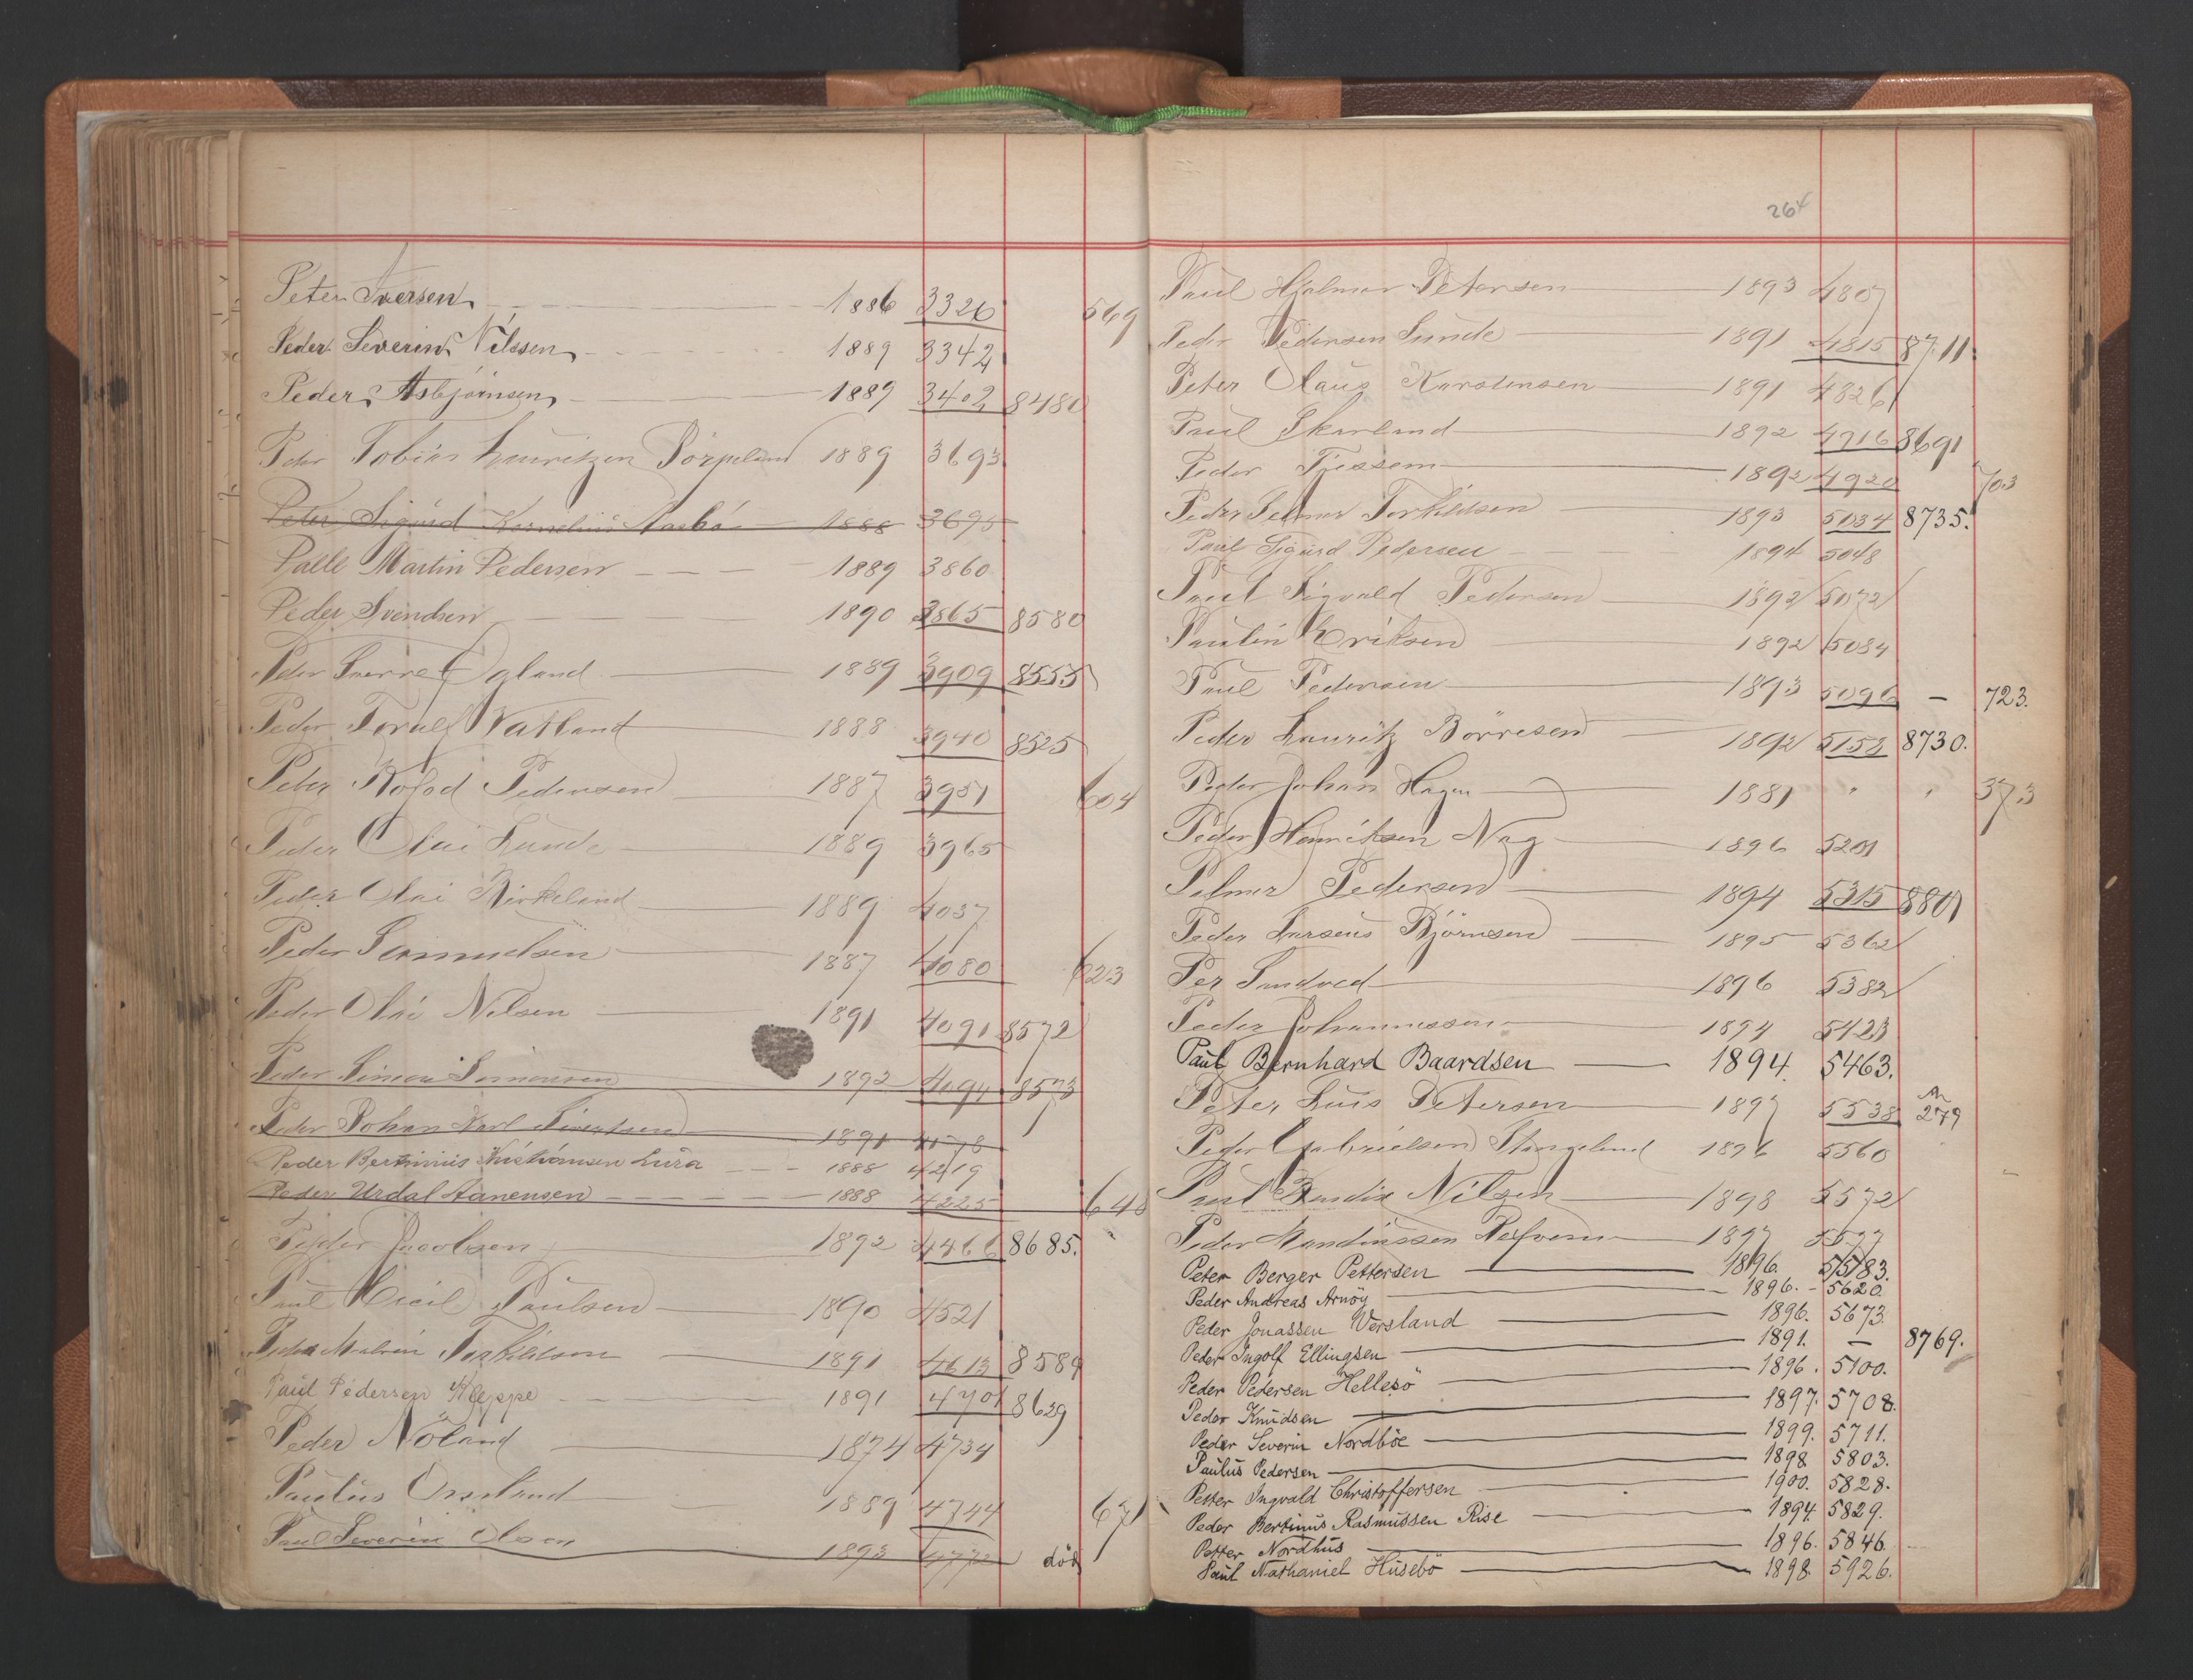 Peter Iversen 1886 3326 569
Peder Severin Nilssen 1889 3342
Peder Asbjørnsen 1889 3402 8480
Peder Tobias Lauritzen Jörpeland 1889 3693
Peter Sigurd Kornelius Aasbö 1888 3695
Palle Martin Pedersen 1889 3860
Peder Svendsen 1890 3865 8580
Peder Sverre Ogland 1889 3909 8555
Peder Toralf Natland 1888 3940 8525
Peter Rolod Pedersen 1887 3951 604
Peder Olai Lunde 1889 3965
Peder Olai Birkeland 1889 4037
Peder Samuelsen 1887 4080 623
Peder Olai Nilsen 1891 4091 8572
Peder Simon Simonsen 1892 4094 8573
Peder Johan Karl Sivertsen 1891 4178
Peder Bertinius Kristiansen Lura 1888 4219
Peder Urdal Aanensen 1888 4225 640
Peder Jacobsen 1892 4466 8685.
Paul Paulsen 1890 4521
Peder Malvin Torkildsen 1891 4613 8589
Paul Pedersen Kleppe 1891 4701 8629
Peder Nöland 1874 4734
Paulus Orsland 1889 4744 671
Paul Severin Olsen 1893 4772 död
264
Paul Hjalmar Petersen 1893 4807
Peder Pedersen Sunde 1891 4815 8711.
Peter Olaus Karstensen 1891 4826
Paul Skarland 1892 4716 8691
Peder Tjessem 1892 4920 703
Peder Selmer Torkildsen 1893 5034 8735.
Paul Sigurd Pedersen 1894 5048
Paul Sigvald Pedersen 1892 5072
Paulin Eriksen 1892 5084
Paul Pedersen 1893 5096 – 723.
Peder Lauritz Börresen 1892 5153 8730.
Peder Johan Hagen 1881 " " 373
Peder Henriksen Nag 1896 5201
Pelmer Pedersen 1894 5315 8801
Peder Larseus Björnsen 1895 5362
Per Sandved 1896 5382
Peder Johannessen 1894 5423
Paul Bernhard Baardsen 1894. 5463.
Peter Luis Petersen 1897 5538 279
Peder Gabrielsen Stangeland 1896 5560
Paul Bendix Nilsen 1898 5572
Peder Mandiussen 1897 5577
Peter Berger Pettersen 1896. 5583.
Peder Andreas Arnöy 1896. 5620.
Peder Jonassen Versland 1896. 5673.
Peder Ingolf Ellingsen 1891. – 8769.
Peder Pedersen Hellesö 1896. 5100.
Peder Knudsen 1897. 5708.
Peder Severin Nordböe 1899. 5711.
Paulus Pedersen 1898 5803.
Petter Ingvald Christoffersen 1900. 5828.
Peder Bertinus Rasmussen Rise 1894. 5829.
Petter Nordhus 1896. 5846.
Paul Nathaniel Husebö 1898. 5926.